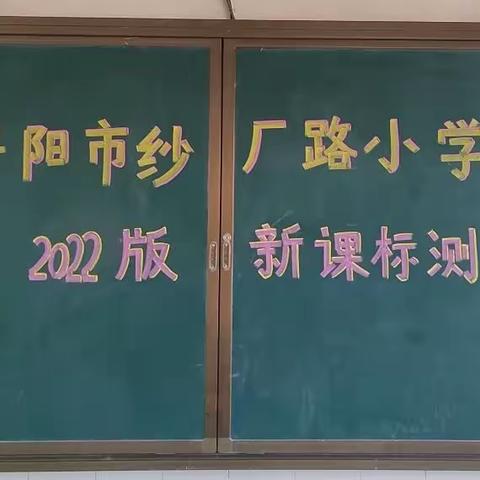 阳市纱厂路小学
2022版新课标测